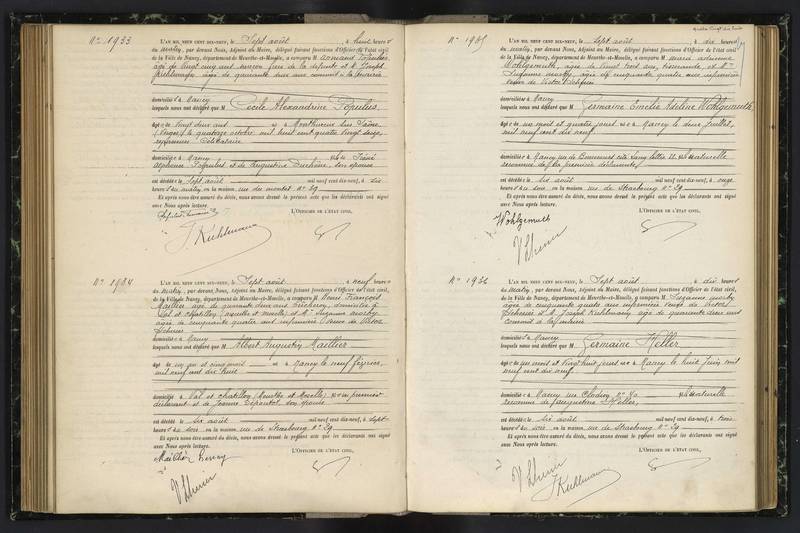 N° 1933
L'AN MIL NEUF CENT DIX-NEUF, le Sept août, à huit heures
du matin, par devant Nous, Adjoint au Maire, délégué faisant fonctions d'Officier de l'état civil,
de la Ville de Nancy, département de Meurthe-et-Moselle, a comparu M. Armand Populus,
âgé de vingt cinq ans frère de la défunte et M. Joseph
Kuhlmann, âgé de quarante deux ans commis à la
domiciliés à Nancy
lesquels nous ont déclaré que M Cécile Alexandrine Populus,
âgé e de vingt deux ans né e à Monthureux sur Saône
(Vosges) le quatorze octobre mil huit cent quatre vingt seize,
célibataire
domicilié e à Nancy
Alphonse Populus et de Augustine Duchêne, son épouse
est décédé e le Sept août mil neuf cent dix-neuf, à six
heures du matin, en la maison rue du montet n° 29
Et après nous être assuré du décès, nous avons dressé le présent acte que les déclarants ont signé
avec Nous après lecture.
L'OFFICIER DE L'ÉTAT CIVIL,
J. Kuhlmann
N° 1934
L'AN MIL NEUF CENT DIX-NEUF, le Sept août, à neuf heures
du matin, par devant Nous, Adjoint au Maire, délégué faisant fonctions d'Officier de l'état civil,
de la Ville de Nancy, département de Meurthe-et-Moselle, a comparu M. Henri François
Maillier âgé de quarante deux ans bûcheron, domicilié à
Val et Chatillon (Meurthe et Moselle) et Me Suzanne
âgée de cinquante quatre ans infirmière veuve de Victor
domiciliés à Nancy
lesquels nous ont déclaré que M Albert Augustin Maillier
âgé de un an et cinq mois né à Nancy le neuf février,
mil neuf cent dix huit
domicilié à Val et Chatillon (Meurthe et Moselle) fils du premier
déclarant et de Jeanne son épouse
est décédé le six août mil neuf cent dix-neuf, à sept
heures du soir, en la maison rue de Strasbourg n° 29
Et après nous être assuré du décès, nous avons dressé le présent acte que les déclarants ont signé
avec Nous après lecture.
L'OFFICIER DE L'ÉTAT CIVIL,
Henry
N° 1935
L'AN MIL NEUF CENT DIX-NEUF, le Sept août, à dix heures
du matin, par devant Nous, Adjoint au Maire, délégué faisant fonctions d'Officier de l'état civil,
de la Ville de Nancy, département de Meurthe-et-Moselle, a comparu M. Marie Adrienne
Wohlgemuth, âgée de vingt trois ans, et Me
Suzanne âgée de cinquante quatre ans infirmière
veuve de Victor
domiciliés à Nancy
lesquels nous ont déclaré que M Germaine Emélie Adeline Wohlgemuth
âgé e de un mois et quatre jours né e à Nancy le deux juillet,
mil neuf cent dix neuf,
domicilié e à Nancy rue de fille naturelle
reconnue de la première déclarante,
est décédé e le six août mil neuf cent dix-neuf, à onze
heures du soir, en la maison rue de Strasbourg n° 29
Et après nous être assuré du décès, nous avons dressé le présent acte que les déclarants ont signé
avec Nous après lecture.
L'OFFICIER DE L'ÉTAT CIVIL,
Wohlgemuth
N° 1936
L'AN MIL NEUF CENT DIX-NEUF, le Sept août, à dix heures
du matin, par devant Nous, Adjoint au Maire, délégué faisant fonctions d'Officier de l'état civil,
de la Ville de Nancy, département de Meurthe-et-Moselle, a comparu M. Suzanne
âgée de cinquante quatre ans infirmière veuve de Victor
et M. Joseph Kuhlmann, âgé de quarante deux ans
commis à la
domiciliés à Nancy
lesquels nous ont déclaré que M Germaine Keller
âgé e de un mois et vingt huit jours né e à Nancy le huit juin mil
neuf cent dix neuf
domicilié e à Nancy rue Clodion n° 40 fille naturelle
reconnue de Jacqueline Keller,
est décédé e le six août mil neuf cent dix-neuf, à trois
heures du soir, en la maison rue de Strasbourg n° 29
Et après nous être assuré du décès, nous avons dressé le présent acte que les déclarants ont signé
avec Nous après lecture.
L'OFFICIER DE L'ÉTAT CIVIL,
J. Kuhlmann